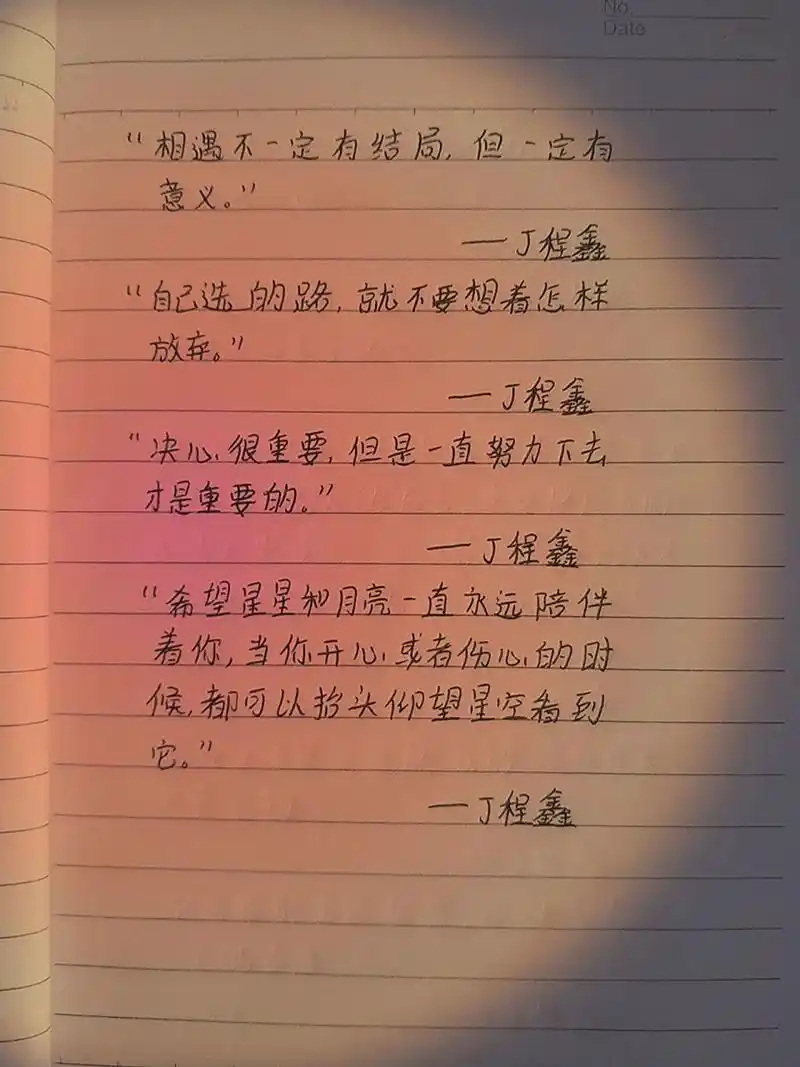 No
Date
“相遇不一定有结局,但一定有
意义。”
—丁程鑫
“自己选的路,就不要想着怎样
放弃。”
—丁程鑫
“决心很重要,但是一直努力下去
才是重要的。”
—丁程鑫
“希望星星和月亮一直永远陪伴
着你,当你开心或者伤心的时
候,都可以抬头仰望星空看到
它。”
—丁程鑫